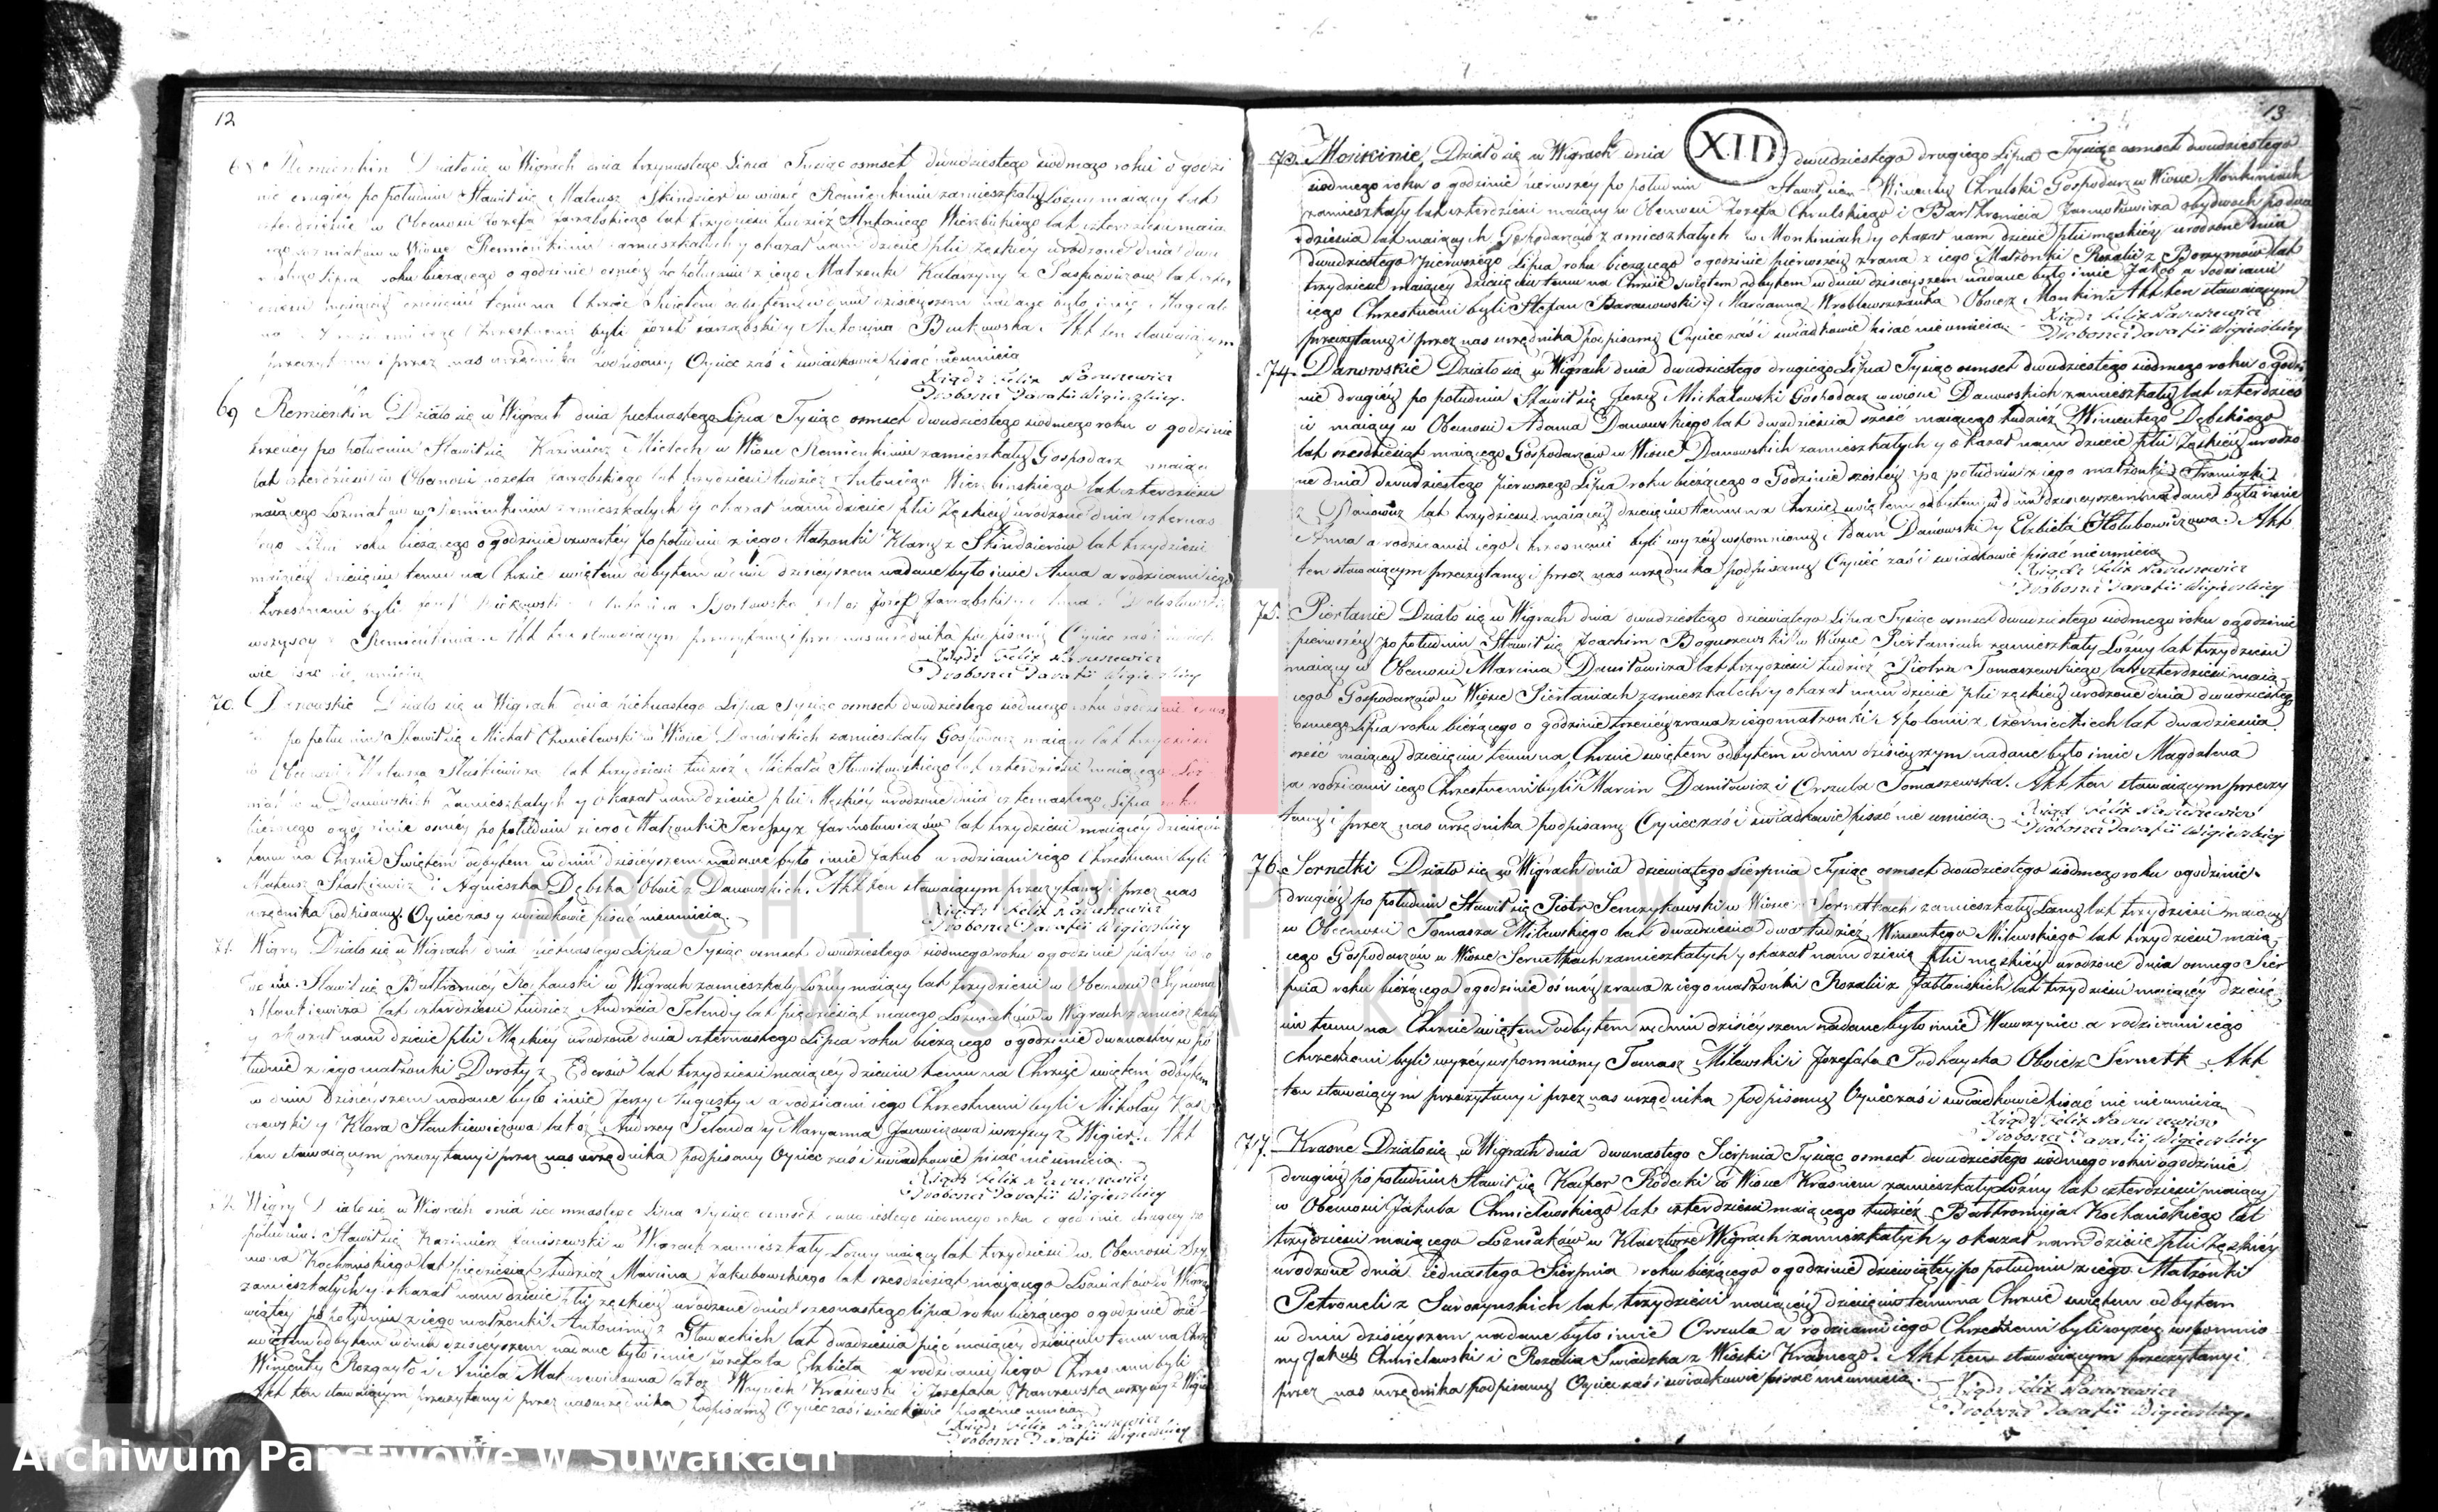 12
Remienkin Działo się w Wigrach dnia trzynastego Lipca Tysiąc osmset dwudziestego siodmego roku o godzi
nie drugiéy po południu Stawił się Mateusz Skindzier w wiosce Remienkiniu zamieszkały Lozny maiący lat
czterdzieście w Obecności Jozefa Zarząbskiego lat trzydzieści tudzież Antoniego Wierzbickiego lat czterdzieści maią
cego w Wiosce Remienkiniu zamieszkałych y okazał nam dziecie płci żęskiey urodzone dnia dwu
nastego Lipca roku bieżącego o godzinie osméy po południu z iego Małżonki Katarzyny z lat czter
dzieści maiącéy dziecieciu temu na Chrzcie Świętem odbytem w dniu dzisieyszem nadane było imie Magdale
na a rodzicami iego Chrzestnemi byli Jozef Zarząbski y Antonina Bućkowska. Akt ten stawaiącym
przeczytany i przez nas urzędnika podpisany Oyciec zaś i swiadkowie pisać nieumieią
Xiądz Felix Naruszewicz
Proboszcz Parafii Wigierskiey
69 Remienkin Działo się w Wigrach dnia pietnastego Lipca Tysiąc osmset dwudziestego siodmego roku o godzinie
trzeciey po południu Stawił się Kazimierz Mielech w Wiosce Remienkiniu zamieszkały Gospodarz maiący
lat czterdzieści w Obecności Jozefa Zarząbskiego lat trzydzieści tudzież Antoniego Wierzbińskiego lat czterdzieści
maiącego Loźniaków w Remienkiniu zamieszkałych y okazał nam dziecie płci Zęskiey urodzone dnia czternas
tego Lipca roku bieżącego o godzinie czwartéy po południu z iego Małżonki Klary z Skindzierów lat trzydzieści
maiącéy dziecieciu temu na Chrzcie swiętem odbytem w dniu dzisieyszem nadane było imie Anna a rodzicami iego
Chrzestnemi byli Antonina Borkowska Jozef Zarząbski
wszyscy z Remienkinia. Akt ten stawaiącym przeczytany i przez nas urzędnika podpisany Oyciec zaś i swiadko
wie pisać nie umieią
Xiądz Felix Naruszewicz
Proboszcz Parafii Wigierskiey
70. Danowskie Działo się w Wigrach dnia pietnastego Lipca Tysiąc osmset dwudziestego siodmego roku o godzinie
po południu Stawił się Michał Chmielewski w Wiosce Danowskich zamieszkały Gospodarz maiący lat trzydzieści
w Obecności Mateusza Staśkiewicza lat trzydzieści tudzież Michała lat czterdzieści maiącego
w Danowskich Zamieszkałych y okazał nam dziecie płci Męskiéy urodzone dnia czternastego Lipca roku
bieżącego o godzinie osméy po południu z iego Małżonki Teressy z Jarmołowiczów lat trzydzieści maiącéy dziecieciu
temu na Chrzcie Swiętem odbytem w dniu dzisieyszem nadane było imie Jakub a rodzicami iego Chrzestnemi byli
Mateusz Staskiewicz i Agnieszka Dębska Oboie z Danowskich. Akt ten stawaiącym przeczytany i przez nas
urzędnika podpisany. Oyciec zaś y swiadkowie pisać nieumieią.
Xiądz Felix Naruszewicz
Proboszcz Parafii Wigierskiey
71. Wigry Działo się w Wigrach dnia pietnastego Lipca Tysiąc osmset dwudziestego siodmego roku o godzinie piątey po po
łudniu. Stawił się Bartłomiey Kochański w Wigrach zamieszkały Lozny maiący lat trzydzieści w Obecności Szymona
Stankiewicza lat czterdzieści tudzież Andrzeia Zelendy lat pięćdziesiąt maiącego Loźniaków w Wigrach zamieszkały
y okazał nam dziecie płci Męskiéy urodzone dnia czternastego Lipca roku bieżącego o godzinie dwunastéy w po
łudnie z iego małżonki Doroty z Ederów lat trzydzieści maiącéy dziecieciu temu na Chrzcie swiętem odbytem
w dniu Dzisieyszem nadane było imie Jerzy Augustyn a rodzicami iego Chrzestnemi byli Mikołay
y Klara Stankiewiczowa także Andrzey Zelenda y Maryanna wszyscy z Wigier. Akt
ten stawaiącym przeczytany i przez nas urzędnika podpisany Oyciec zaś i swiadkowie pisać nieumieią.
Xiądz Felix Naruszewicz
Proboszcz Parafii Wigierskiey
Wigry Działo się w Wigrach dnia siedmnastego Lipca Tysiąc osmset dwudziestego siodmego roku o godzinie drugiey po
południu. Stawił się Kazimierz Janiszewski w Wigrach zamieszkały Lozny maiący lat trzydzieści w Obecności Szy
mona Kochańskiego lat pięćdziesiąt tudzież Marcina Jakubowskiego lat szesdziesiąt maiącego Loźniaków w Wigrach
zamieszkałych y okazał nam dziecie płci zęskiey urodzone dnia szesnastego lipca roku bieżącego o godzinie dzie
wiątey po południu z iego małżonki Antoniny z Słowackich lat dwadzieścia pięć maiącéy dziecieciu temu na Chrzcie
swiętem odbytem w dniu dzisieyszem nadane było imie Jozefata Elżbieta a rodzicami iego Chrzestnemi byli
Wincenty Rozgayło i Aniela Makarewiczowna także Woyciech Krasiewski i Jozefata Kaniewska wszyscy z Wigier
Akt ten stawaiącym przeczytany i przez nas urzędnika podpisany Oyciec zaś i swiadkowie pisać nie umieią
Xiądz Felix Naruszewicz
Proboszcz Parafii Wigierskiey
13
XID
73. Monkinie, Działo się w Wigrach dnia dwudziestego drugiego Lipca Tysiąc osmset dwudziestego
siodmego roku o godzinie pierwszey po południu Stawił się Wincenty Chrulski Gospodarz w Wiosce Monkiniach
zamieszkały lat czterdzieści maiący w Obecności Jozefa Chrulskiego i Bartłomieia Jarmołowicza obydwoch po dwa
dzieścia lat maiących Gospodarzów zamieszkałych w Monkiniach y okazał nam dziecie płci męskiey urodzone dnia
dwudziestego pierwszego Lipca roku bieżącego o godzinie pierwszey zrana z iego Małżonki Rozalii z Borymów lat
trzydzieści maiącey dziecieciu temu na Chrzcie swiętem odbytem w dniu dzisieyszem nadane było imie Jakob a rodzicami
iego Chrzestnemi byli Stefan Baranowski y Marcianna Wroblewszczanka Oboie z Monkiń. Akt ten stawaiącym
przeczytany i przez nas urzędnika podpisany Oyciec zaś i swiadkowie pisać nieumieią
Xiądz Felix Naruszewicz
Proboszcz Parafii Wigierskiey
74. Danowskie Działo się w Wigrach dnia dwudziestego drugiego Lipca Tysiąc osmset dwudziestego siodmego roku o godzi
nie drugiéy po południu Stawił się Jerzy Michałowski Gospodarz w wiosce Danowskich zamieszkały lat czterdzieś
ci maiący w Obecności Adama Danowskiego lat dwadzieścia sześć maiącego tudzież Wincentego Dębskiego
lat szesdziesiąt maiącego Gospodarzów w Wiosce Danowskich zamieszkałych y okazał nam dziecie płci Zęskiey urodzo
ne dnia dwudziestego pierwszego Lipca roku bieżącego o Godzinie szostéy po południu z iego małżonki Franciszki
z Danowicz lat trzydzieści maiącéy dziecieciu temu na Chrzcie swiętem odbytem w dniu dzisieyszem nadane było imie
Anna a rodzicami iego chrzesnemi byli wyżéy wspomniony Adam Danowski y Elżbieta Hołubowiczowa. Akt
ten stawaiącym przeczytany i przez nas urzędnika podpisany Oyciec zaś i swiadkowie pisać nie umieią
Xiądz Felix Naruszewicz
Proboszcz Parafii Wigierskiey
75. Piertanie Działo się w Wigrach dnia dwudziestego dziewiątego Lipca Tysiąc osmset dwudziestego siodmego roku o godzinie
pierwszéy po południu Stawił się Joachim Boguszewski w Wiosce Piertaniach zamieszkały Loźny lat trzydzieści
maiący w Obecności Marcina Daniłowicza lat trzydzieści tudzież Piotra Tomaszewskiego lat czterdzieści maią
cego Gospodarzów w Wiosce Piertaniach zamieszkałych y okazał nam dziecie płci zęskiéy urodzone dnia dwudziestego
osmego Lipca roku bieżącego o godzinie trzeciéy zrana z iego małżonki Apolonii z Czernieckich lat dwadzieścia
sześć maiącéy dziecieciu temu na Chrzcie swiętem odbytem w dniu dzisieyszym nadane było imie Magdalena
a rodzicami iego Chrzestnemi byli Marcin Daniłowicz i Orszula Tomaszewska. Akt ten stawaiącym przeczy
tany i przez nas urzędnika podpisany Oyciec zaś i swiadkowie pisać nie umieią
Xiądz Felix Naruszewicz
Proboszcz Parafii Wigierskiey
76. Sernetki Działo się w Wigrach dnia dziewiątego Sierpnia Tysiąc osmset dwudziestego siodmego roku o godzinie
drugiéy po południu Stawił się Piotr Senczykowski w Wiosce Sernetkach zamieszkały Lozny lat trzydzieści maiący
w Obecności Tomasza Milewskiego lat dwadzieścia dwa tudzież Wincentego Milewskiego lat trzydzieści maią
cego Gospodarzów w Wiosce Sernetkach zamieszkałych y okazał nam dziecię płci męskiey urodzone dnia osmego Sier
pnia roku bieżącego o godzinie osméy zrana z iego małżonki Rozalii z Jabłońskich lat trzydzieści maiącéy dziecie
ciu temu na Chrzcie swiętem odbytem w dniu dzisieyszem nadane było imie Wawrzyniec a rodzicami iego
Chrzestnemi byli wyżey wspomniony Tomasz Milewski i Jozefata Podhayska Oboie z Sernetk Akt
ten stawaiącym przeczytany i przez nas urzędnika podpisany Oyciec zaś i swiadkowie pisać nie nieumieią
Xiądz Felix Naruszewicz
Proboszcz Parafii Wigierskiey
77. Krasne Działo się w Wigrach dnia dwunastego Sierpnia Tysiąc osmset dwudziestego siodmego roku o godzinie
drugiéy po południu Stawił się Kacper Rodecki w Wiosce Krasnem zamieszkały Lozny lat czterdzieści maiący
w Obecności Jakuba Chmielewskiego lat czterdzieści maiącego tudzież Bartłomieja Kochańskiego lat
trzydzieści maiącego Loźniaków w Klasztorze Wigrach zamieszkałych y okazał nam dziecie płci Zęskiéy
urodzone dnia iednastego Sierpnia roku bieżącego o godzinie dziewiątéy po południu z iego Małżonki
Petroneli z Sarożynskich lat trzydzieści maiącéy dziecieciu temu na Chrzcie swiętem odbytem
w dniu dzisieyszem nadane było imie Orszula a rodzicami iego Chrzestnemi byli wyżey wspomnio
ny Jakub Chmielewski i Rozalia Swiadzka z Wioski Krasnego. Akt ten stawaiącym przeczytany i
przez nas urzędnika podpisany Oyciec zaś i swiadkowie pisać nieumieią.
Xiądz Felix Naruszewicz
Proboszcz Parafii Wigierskiey
ARCHIWUM PAŃSTWOWE
W SUWAŁKACH
Archiwum Państwowe w Suwałkach